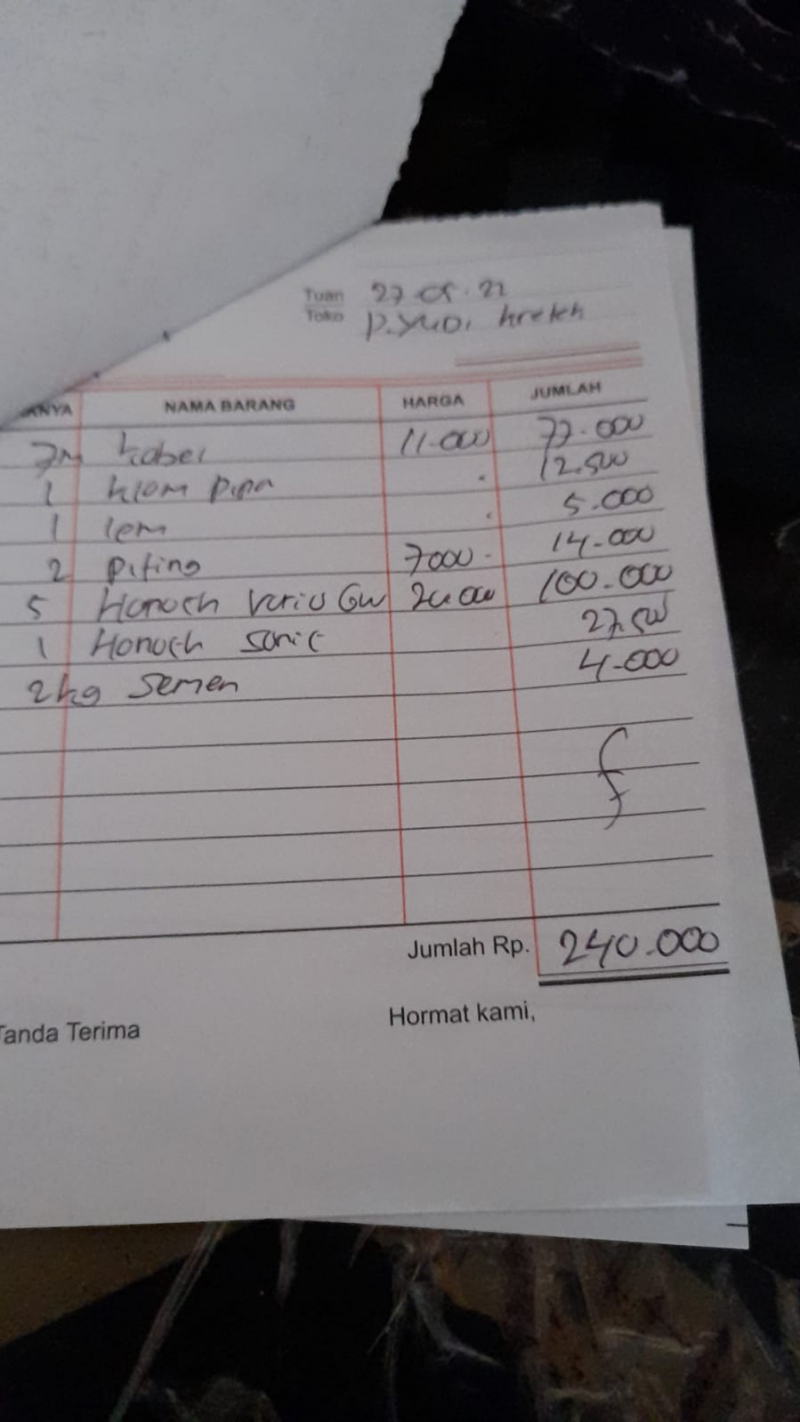 Tuan 27.05.22
Toko P. Yudi kreteh
ANYA NAMA BARANG HARGA JUMLAH
7M kabel 11.000 77.000
1 klem pipa 12.500
1 lem 5.000
2 Piting 7000 14.000
5 Hanoch Vario 6w 20.000 100.000
1 Hanoch Sonic 27.500
2kg Semen 4.000
Jumlah Rp. 240.000
Tanda Terima Hormat kami,